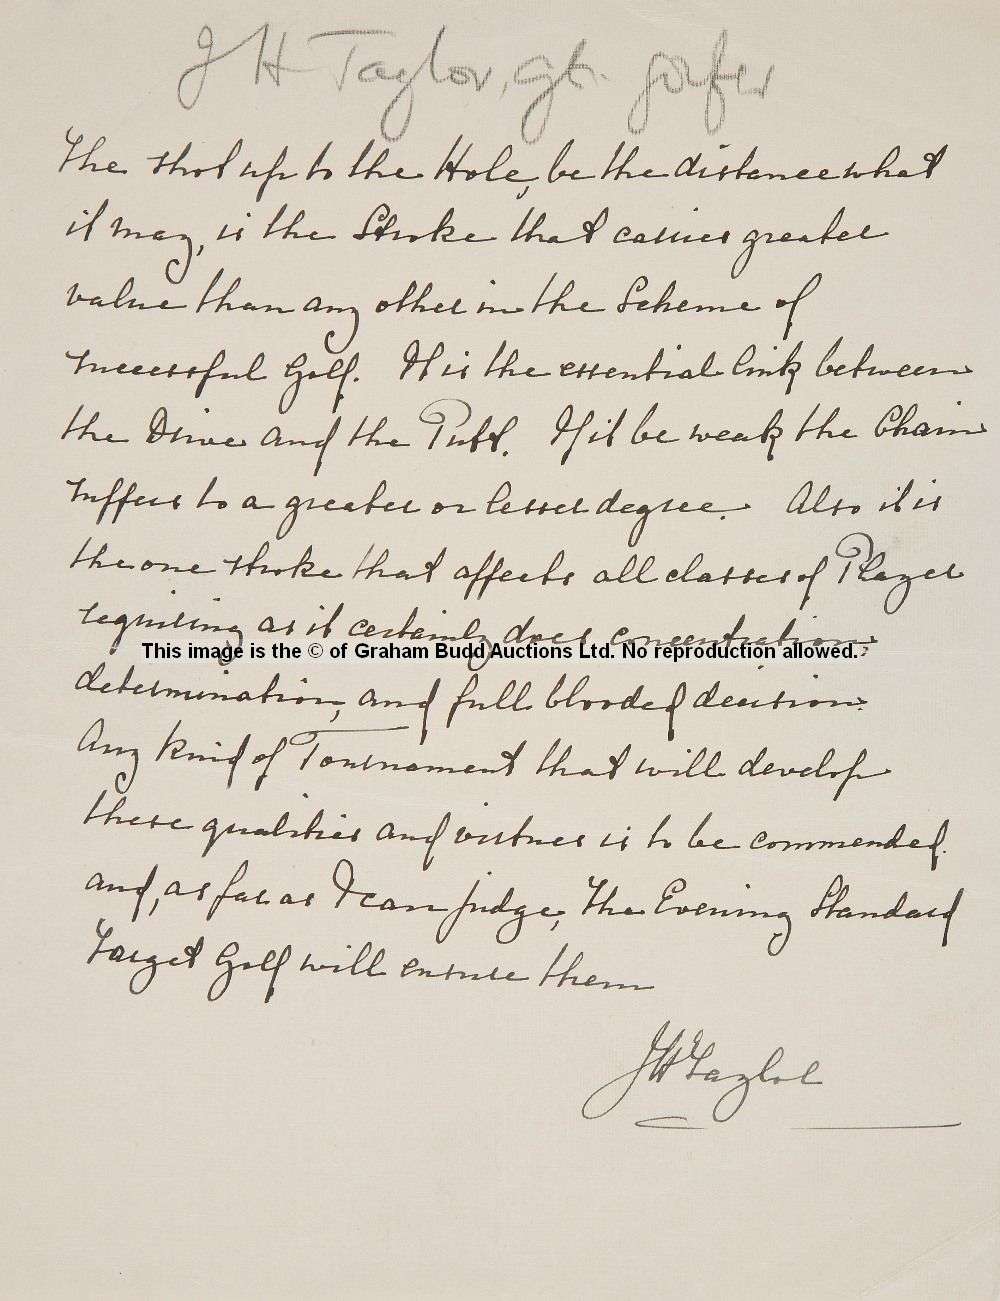 J H Taylor, gt. golfer
The shot up to the Hole, be the distance what
it may, is the Stroke that carries greater
value than any other in the Scheme of
successful Golf. It is the essential link between
the Drive and the Putt. If it be weak the Chain
suffers to a greater or lesser degree. Also it is
the one stroke that affects all classes of Player
requiring as it certainly does concentration,
This image is the © of Graham Budd Auctions Ltd. No reproduction allowed.
determination, and full blooded decision.
Any kind of Tournament that will develop
these qualities and virtues is to be commended.
and, as far as I can judge, The Evening Standard
Target Golf will ensure them
JH Taylor